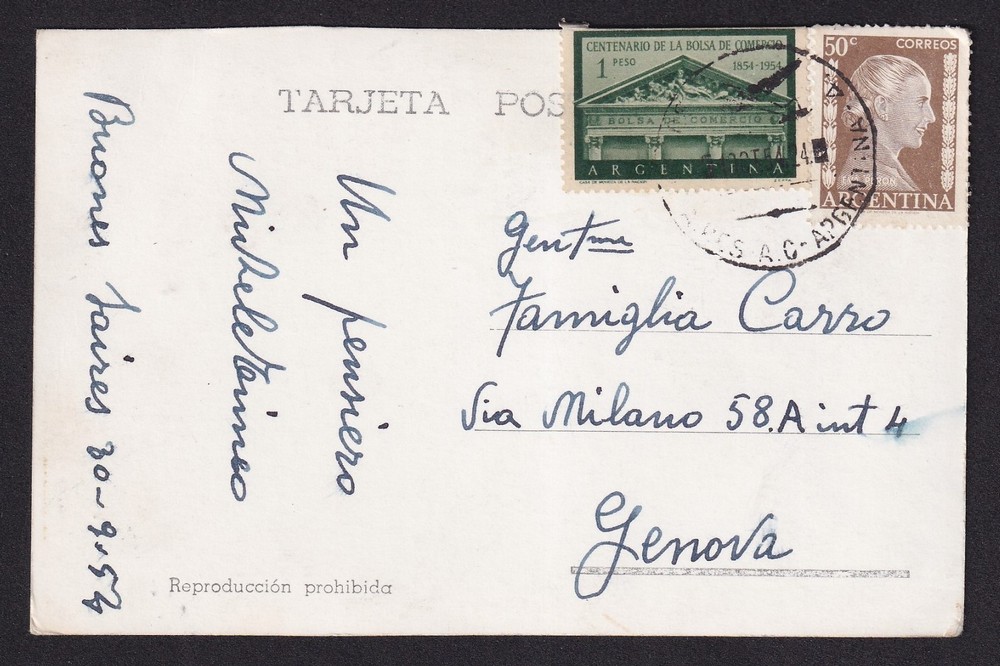 TARJETA POS
CENTENARIO DE LA BOLSA DE COMERCIO
1 PESO 1854-1954
BOLSA DE COMERCIO
ARGENTINA
CASA DE MONEDA DE LA NACION
50c CORREOS
EVA PERON
ARGENTINA
AIRES A.C-ARGENTINA
Buones Iaires 30-9-54
Un pensiero
Gentme
Famiglia Carro
Via Milano 58.A int 4
Genova
Reproducción prohibida